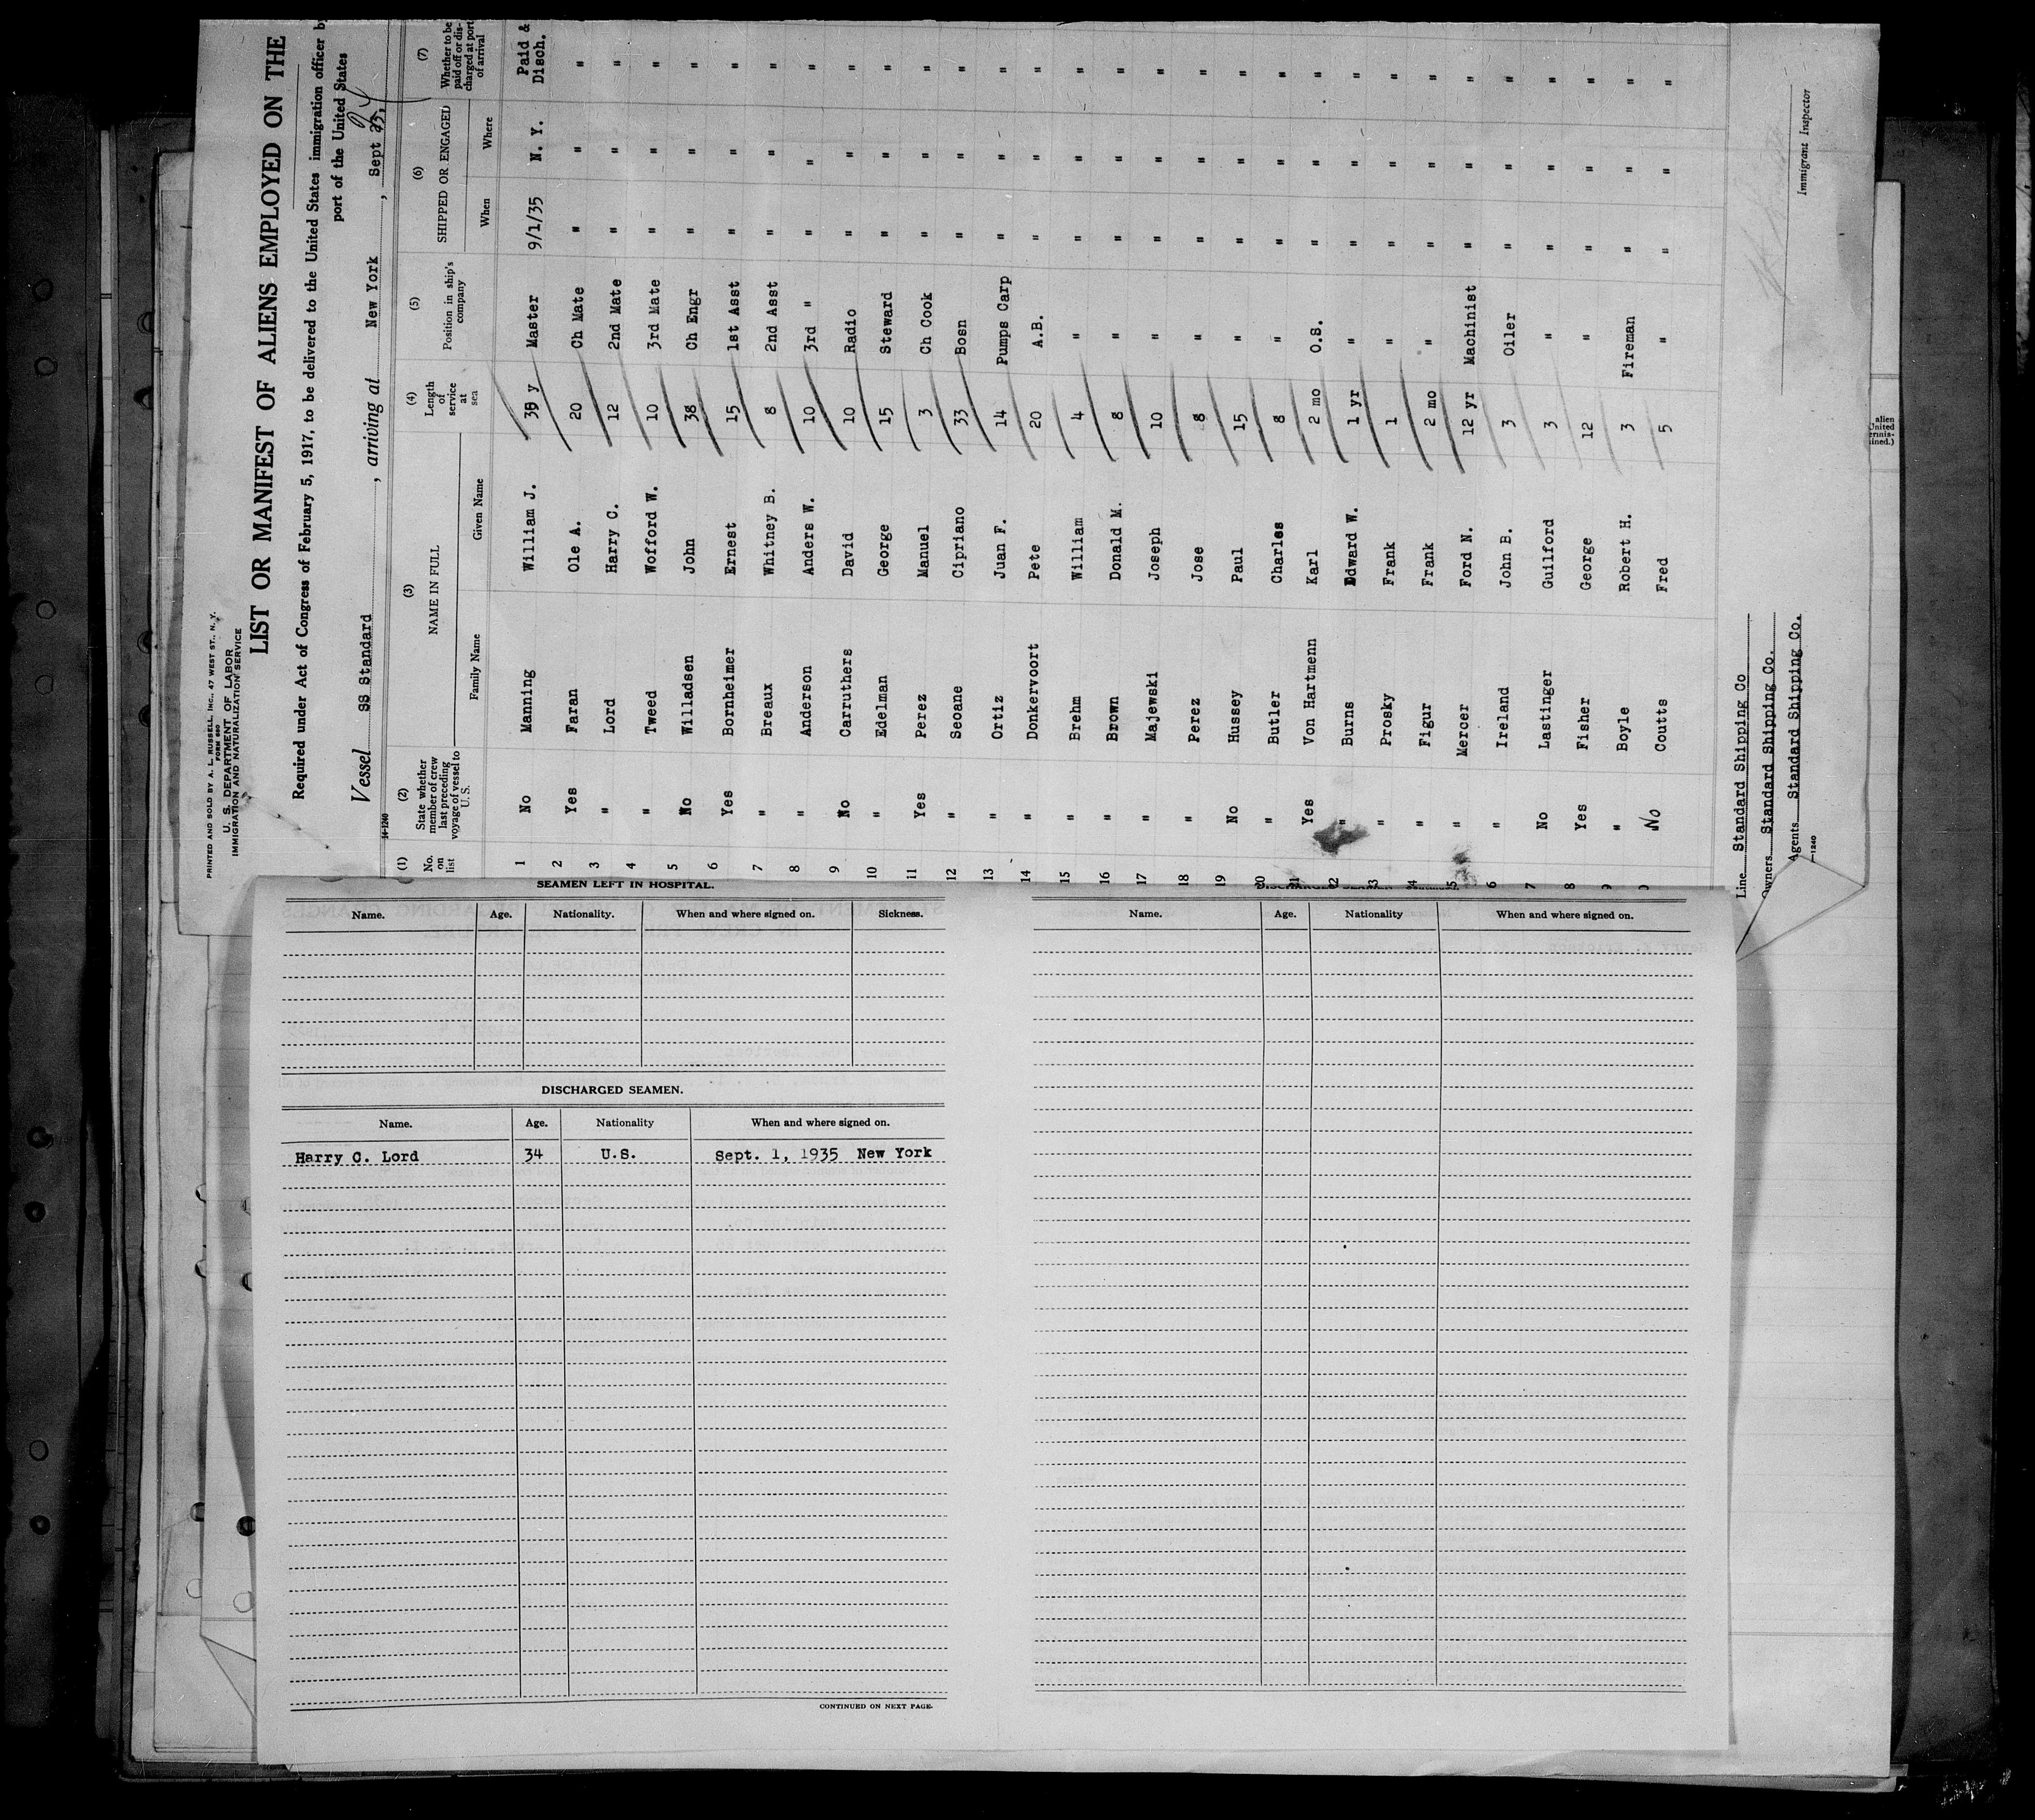 PRINTED AND SOLD BY A. L. RUSSELL, INC., 47 WEST ST., N. Y.
FORM 680
U. S. DEPARTMENT OF LABOR
IMMIGRATION AND NATURALIZATION SERVICE
LIST OR MANIFEST OF ALIENS EMPLOYED ON THE
Required under Act of Congress of February 5, 1917, to be delivered to the United States immigration officer by
port of the United States
Vessel SS Standard , arriving at New York , Sept 25,
14-1240
(1) (2) (3) (4) (5) (6) (7)
No. on list State whether member of crew last preceding voyage of vessel to U. S. NAME IN FULL Length of service at sea Position in ship's company SHIPPED OR ENGAGED Whether to be paid off or discharged at port of arrival
Family Name Given Name When Where
1 No Manning William J. 35 y Master 9/1/35 N. Y. Paid & Disch.
2 Yes Faran Ole A. 20 Ch Mate " " "
3 " Lord Harry C. 12 2nd Mate " " "
4 " Tweed Wofford W. 10 3rd Mate " " "
5 No Willadsen John 38 Ch Engr " " "
6 Yes Bornheimer Ernest 15 1st Asst " " "
7 " Breaux Whitney B. 8 2nd Asst " " "
8 " Anderson Anders W. 10 3rd " " " "
9 No Carruthers David 10 Radio " " "
10 " Edelman George 15 Steward " " "
11 Yes Perez Manuel 3 Ch Cook " " "
12 " Seoane Cipriano 33 Bosn " " "
13 " Ortiz Juan F. 14 Pumps Carp " " "
14 " Donkervoort Pete 20 A.B. " " "
15 " Brehm William 4 " " " "
16 " Brown Donald M. 8 " " " "
17 " Majewski Joseph 10 " " " "
18 " Perez Jose 8 " " " "
19 No Hussey Paul 15 " " " "
20 " Butler Charles 8 " " " "
21 Yes Von Hartmenn Karl 2 mo O.S. " " "
2 " Burns Edward W. 1 yr " " " "
3 " Prosky Frank 1 " " " "
4 " Figur Frank 2 mo " " " "
5 " Mercer Ford N. 12 yr Machinist " " "
6 " Ireland John B. 3 Oiler " " "
7 No Lastinger Guilford 3 " " " "
8 Yes Fisher George 12 " " " "
9 " Boyle Robert H. 3 Fireman " " "
0 No Coutts Fred 5 " " " "
Line Standard Shipping Co
Owners Standard Shipping Co.
Agents Standard Shipping Co.
—1240
Immigrant Inspector
alien
United
ined.)
SEAMEN LEFT IN HOSPITAL.
Name. Age. Nationality. When and where signed on. Sickness.
DISCHARGED SEAMEN.
Name. Age. Nationality When and where signed on.
Harry C. Lord 34 U.S. Sept. 1, 1935 New York
CONTINUED ON NEXT PAGE.
Name. Age. Nationality When and where signed on.